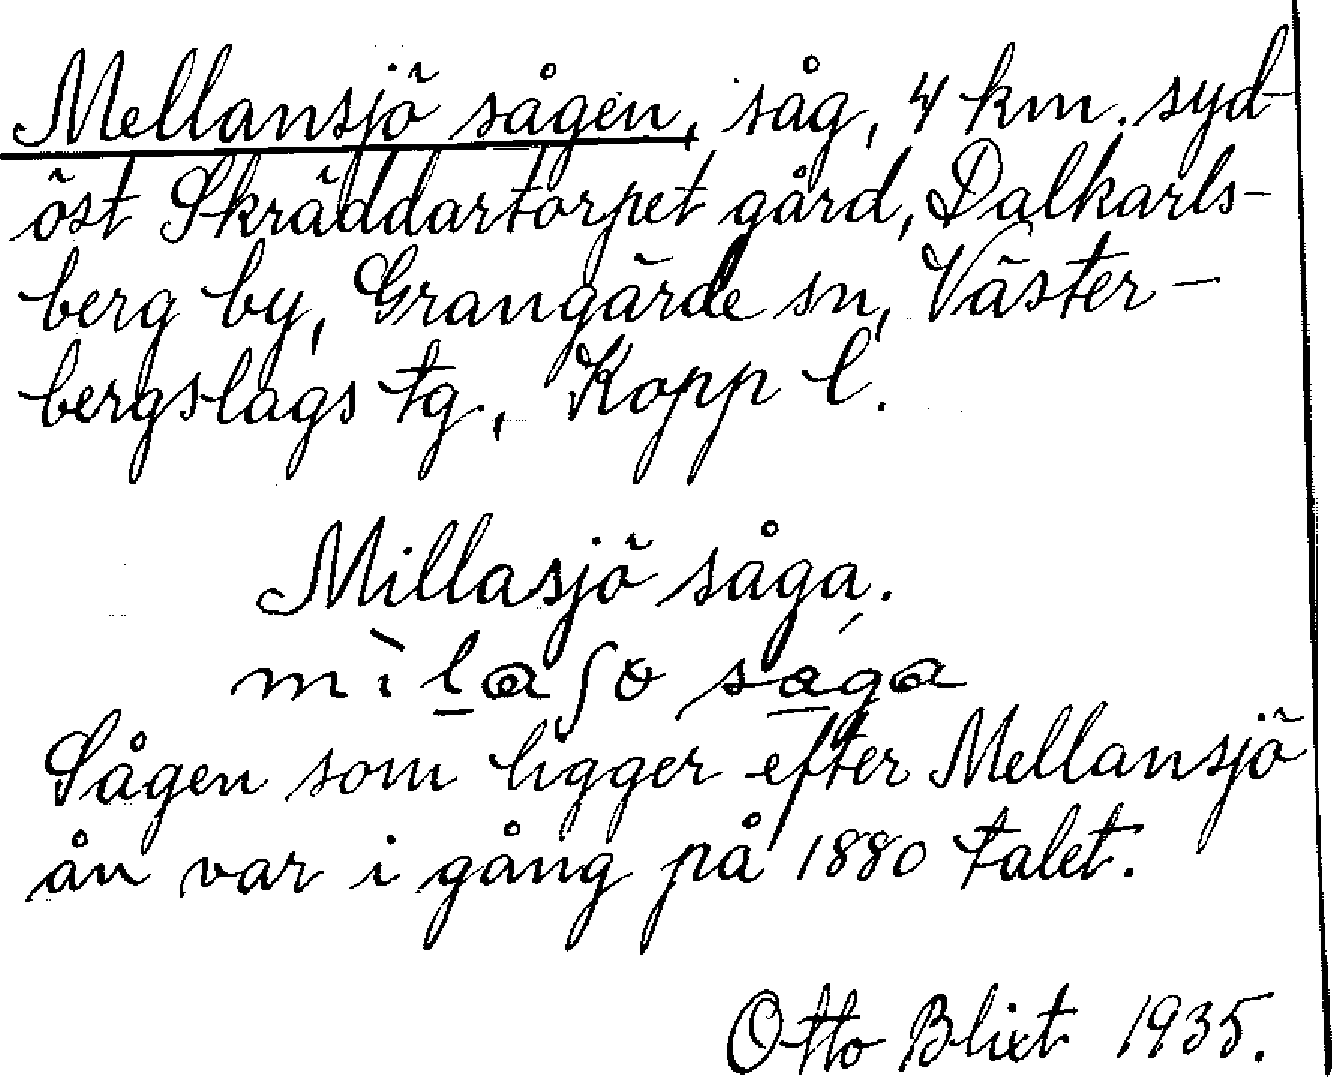 Mellansjö sågen, såg, 4 km. syd-
öst Skräddartorpet gård, Dalkarls-
berg by, Grangärde sn, Väster-
bergslags tg., Kopp l.
Millasjö såga.
mìḻaʃɵ sa̱gá
Sågen som ligger efter Mellansjö
ån var i gång på 1880 talet.
Otto Blixt 1935.